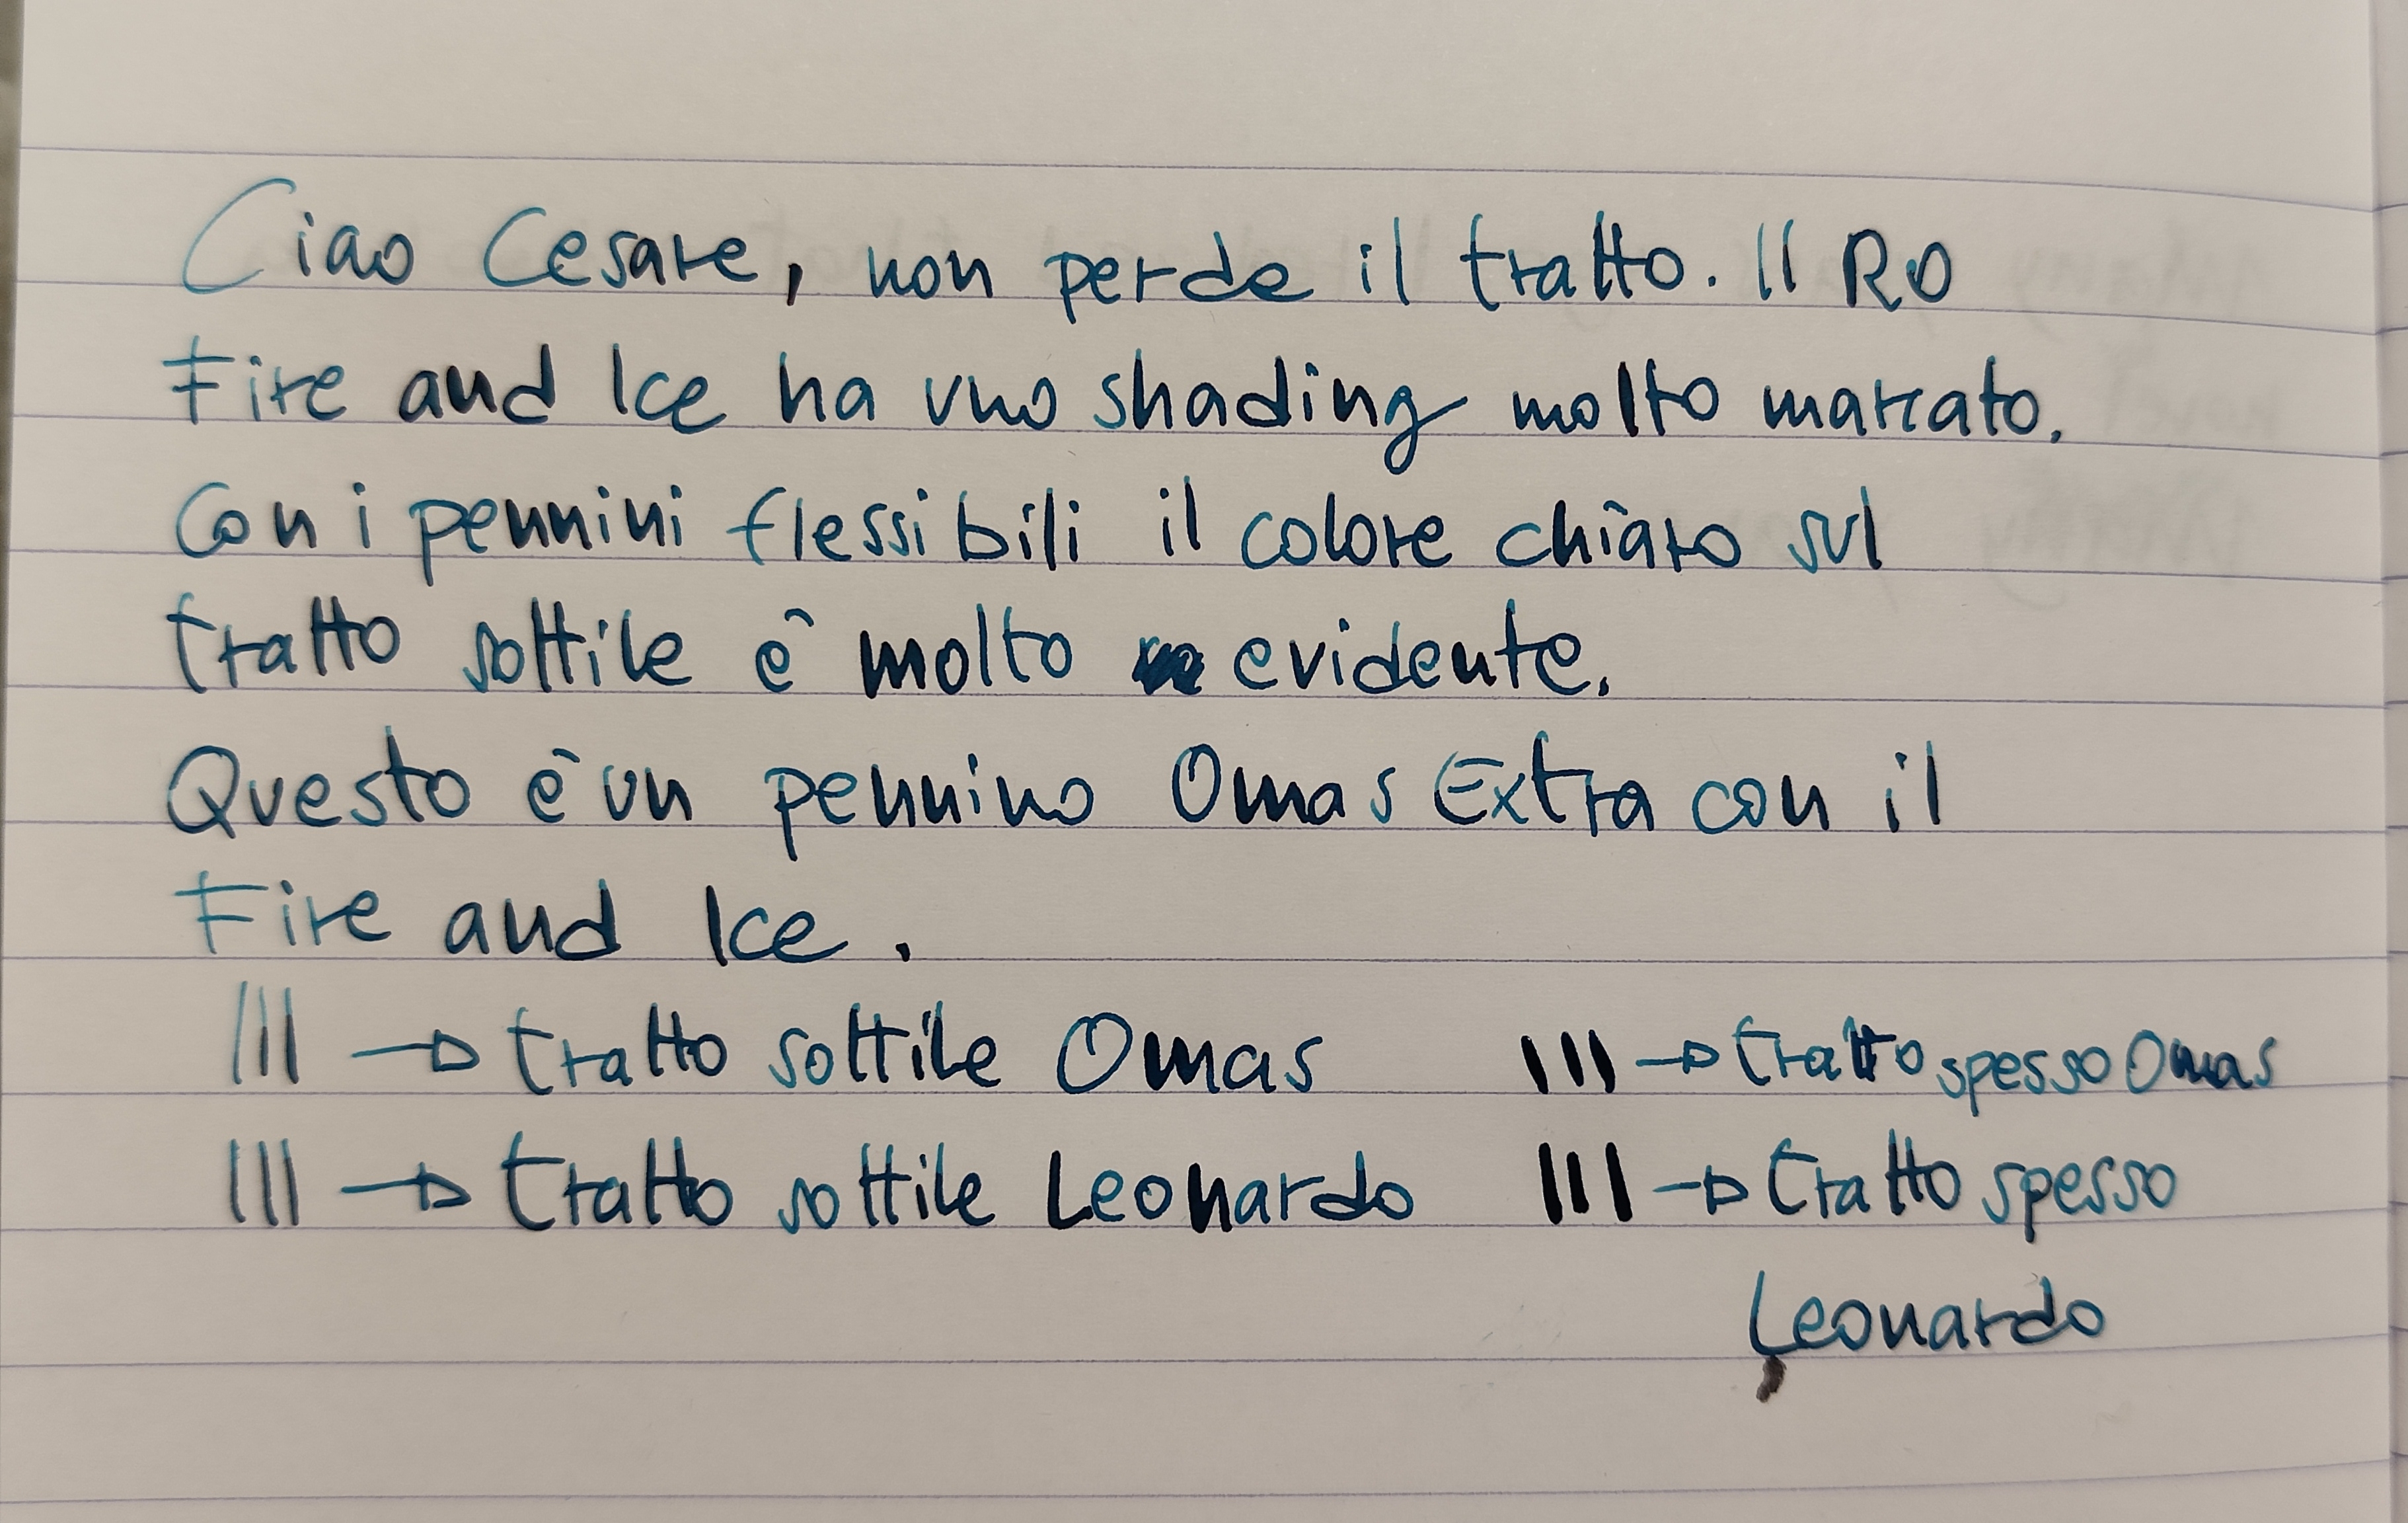 Ciao Cesare, non perde il tratto. Il RO
Fire and Ice ha uno shading molto marcato.
Con i pennini flessibili il colore chiaro sul
tratto sottile è molto evidente.
Questo è un pennino Omas Extra con il
Fire and Ice.
||| → tratto sottile Omas ||| → tratto spesso Omas
||| → tratto sottile Leonardo ||| → tratto spesso
Leonardo